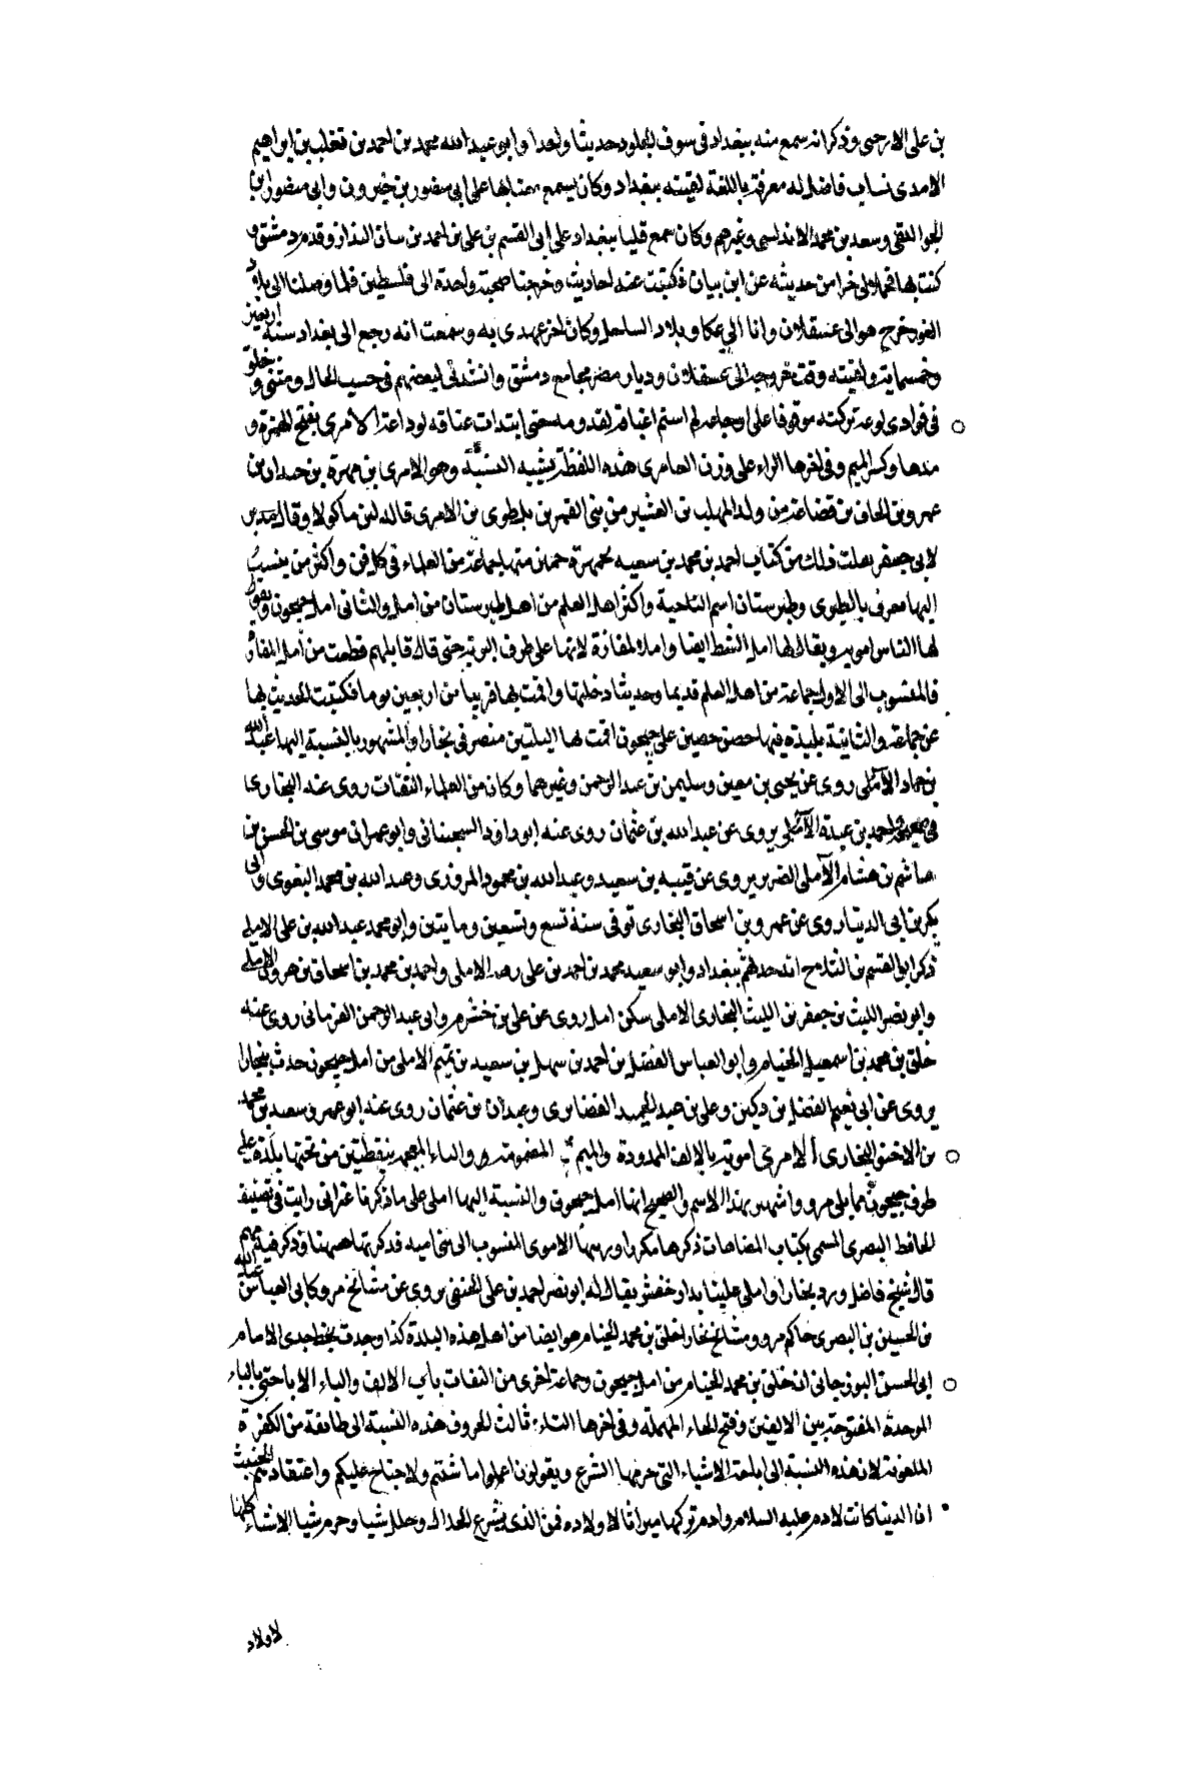 بن على الارحى وذكر انه سمع منه ببغداد فى سوف الجلود حديثا واحدا وابو عبد الله محمد بن احمد بن تغلب بن ابراهيم
الامدى نساب فاضل له معرفة باللغة لقيته ببغداد وكان يسمع معنا بها على ابى منصور بن خيرون وابى منصور ابن
الجواليقى وسعد بن محمد الاندلسى وغيرهم وكان سمع قليا ببغداد على ابى القسم بن على بن احمد بن بيان الرزاز وقدم دمشق و
كنت بها فحمل الى جزا من حديثه عن ابن بيان فكتبت عنه احاديث وخرجنا صحبة واحدة الى فلسطين فلما وصلنا الى بلاد
الغور خرج هو الى عسقلان وانا الى عكا وبلاد الساحل وكان اخر عهدى به وسمعت انه رجع الى بغداد سنة اربعين
وخمسماية ولقيته وقت خروجه الى عسقلان وديار مصر بجامع دمشق وانشدنى لبعضهم فى حسب الحال ومتنى و خلق
فى فوادى لوعة تركته موقوفا على اوجاعه لم استم اعتناقه لقدومه حتى ابتدات عناقه لوداعه الامرى بفتح الهمزة و
مدها وكسر الميم وفى اخرها الراء على وزن العامرى هذه اللفظة يشبه النسبة وهو الامرى بن مهرة بن حيدان بن
عمرو بن الحاف بن قضاعة من ولد المهلب بن العشير من بنى القمر بن بلطوى بن الامرى قاله ابن ماكولا وقال
لابى جعفر نقلت ذلك من كتاب احمد بن محمد بن سعيد بجمهرة خرج منها جماعة من العلماء فى كل فن واكثر من ينسب
اليها معرف بالطبرى وطبرستان اسم الناحية واكثر اهل العلم من اهل طبرستان من امل والثانى امل جيحون ويقول
لها الناس امويه ويقال لها امل الشط ايضا وامل المفازة لانها على طرف البرية حتى قال قايلهم قطعت من امل المفاز
فالمنسوب الى الاول جماعة من اهل العلم قديما وحديثا دخلتها واقمت بها قريبا من اربعين يوما فكتبت الحديث بها
عن جماعة والثانية بليدة فيها حصن حصين على جيحون اقمت لها ليلتين منصرفى بخارا والمشهور بالنسبة اليها عبد الله
بن حماد الآملى روى عن يحيى بن معين وسليمن بن عبد الرحمن وغيرهما وكان من العلماء الثقات روى عنه البخارى
فى صحيحه واحمد بن عبدة الآملى يروى عن عبد الله بن عثمان روى عنه ابو داود السجستانى وابو عمران موسى بن الحسن بن
هاشم بن هشام الآملى الضرير يروى عن قتيبه بن سعيد وعبد الله بن محمود المروزى وعبد الله بن محمد البغوى وابى
بكر بن ابى الدنيا روى عن عمرو بن اسحاق البخارى توفى سنة تسع وتسعين ومايتين وابو محمد عبد الله بن على الاملى
ذكر ابو القسم بن الثلاج انه حدثهم ببغداد وابو سعيد محمد بن احمد بن على الاملى واحمد بن محمد بن اسحاق بن هرون الاملى
وابو نصر الليث بن جعفر بن الليث البخارى الاملى سكن امل روى عن على بن خشرم وابى عبد الرحمن الفزمانى روى عنه
خلف بن محمد بن اسمعيل الخيام وابو العباس الفضل بن احمد بن سهل بن سعيد بن تميم الاملى من امل جيحون حدث ببخارا
يروى عن ابى نعيم الفضل بن دكين وعلى بن عبد الحميد الغضايرى وعبدان بن عثمان روى عنه ابو عمرو سعيد بن محمد
بن الاحنف البخارى الامويى امويه بالالف الممدودة والميم المضمومة والياء المعجمه بنقطتين من تحتها بلدة على
طرف جيحون مما يلى مرو واشتهر بهذا الاسم والصحيح انها امل جيحون والنسبة اليها املى على ما ذكرنا غير انى رايت فى تصنيف
الحافظ البصرى المسمى بكتاب المضاهات ذكرها مكررا وربما الاموى المنسوب الى فدكرتها ههنا وذكر فيه
قال شيخ فاضل ورد بخارا واملى علينا بدار خفش يقال له ابو نصر احمد بن على الحنفى يروى عن مشائخ مرو كابى العباس عبد الله
بن الحسين بن البصرى حاكم مرو ومشائخ بخارا خلف بن محمد الخيام هو ايضا من اهل هذه البلدة كذا وجدت بخط جدى الامام
ابى الحسن البوزجانى ان خلف بن محمد الخيام من امل جيحون وجماعة اخرى من الثقات باب الالف والباء الاباحتى بالباء
الموحدة المفتوحة بين الالفين وفتح الحاء المهملة وفى اخرها التاء ثالث الحروف هذه النسبة الى طائفة من الكفرة
الملعونة لان هذه النسبة الى اباحة الاشياء التى حرمها الشرع ويقولون اعملوا ما شئتم ولا جناح عليكم واعتقادهم الخبيث
ان الدنيا كانت لادم عليه السلام وادم تركها ميراثا لاولاده فمن الذى يشرع الحدال وحلل شيا وحرم شيا الاشياء كلها
لاولاد